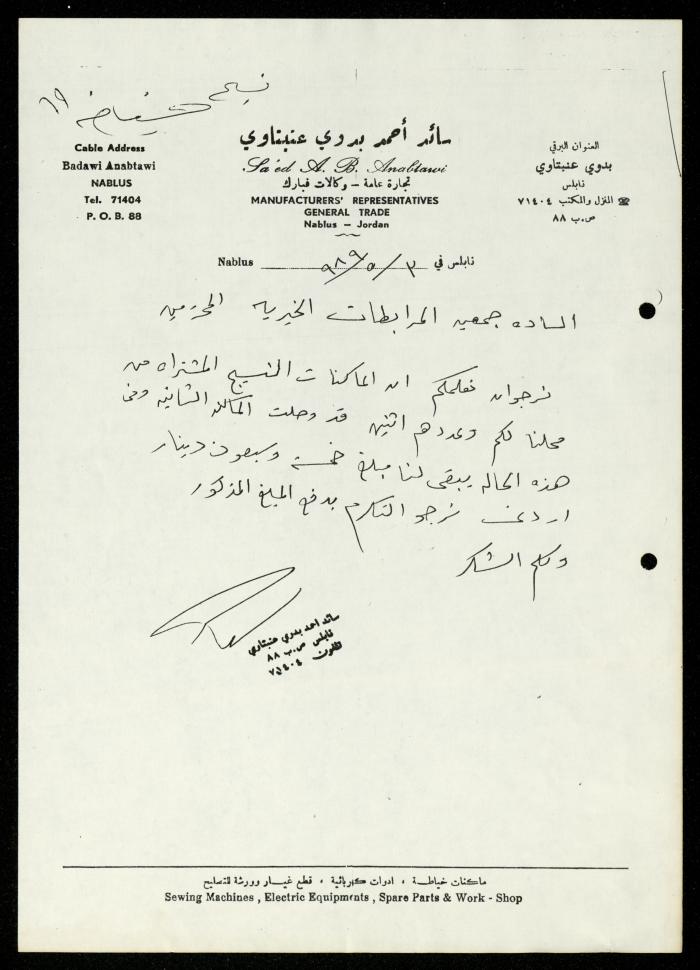 نسيج
سائد أحمد بدوي عنبتاوي
Sa'ed A. B. Anabtawi
تجارة عامة – وكالات قبارك
MANUFACTURERS' REPRESENTATIVES
GENERAL TRADE
Nablus – Jordan
Cable Address
Badawi Anabtawi
NABLUS
Tel. 71404
P. O. B. 88
العنوان البرقي
بدوي عنبتاوي
نابلس
☎ المنزل والمكتب ٧١٤٠٤
ص.ب ٨٨
Nablus ٣ / ٥ / ٩٨٩ نابلس في
الساده جمعية المرابطات الخيريه المحترمين
نرجوان نعلمكم ان الماكنات النسيج المشتراه من
محلنا لكم وعددهم اثنين قد وصلت الماكنه الثانيه وفي
هذه الحاله يبقى لنا مبلغ خمسة وسبعون دينار
اردني نرجو التكرم بدفع المبلغ المذكور
ولكم الشكر
سائد احمد بدوي عنبتاوي
نابلس ص.ب ٨٨
تلفون ٧١٤٠٤
ماكنات خياطة ، ادوات كهربائية ، قطع غيار وورشة للتصليح
Sewing Machines , Electric Equipments , Spare Parts & Work - Shop